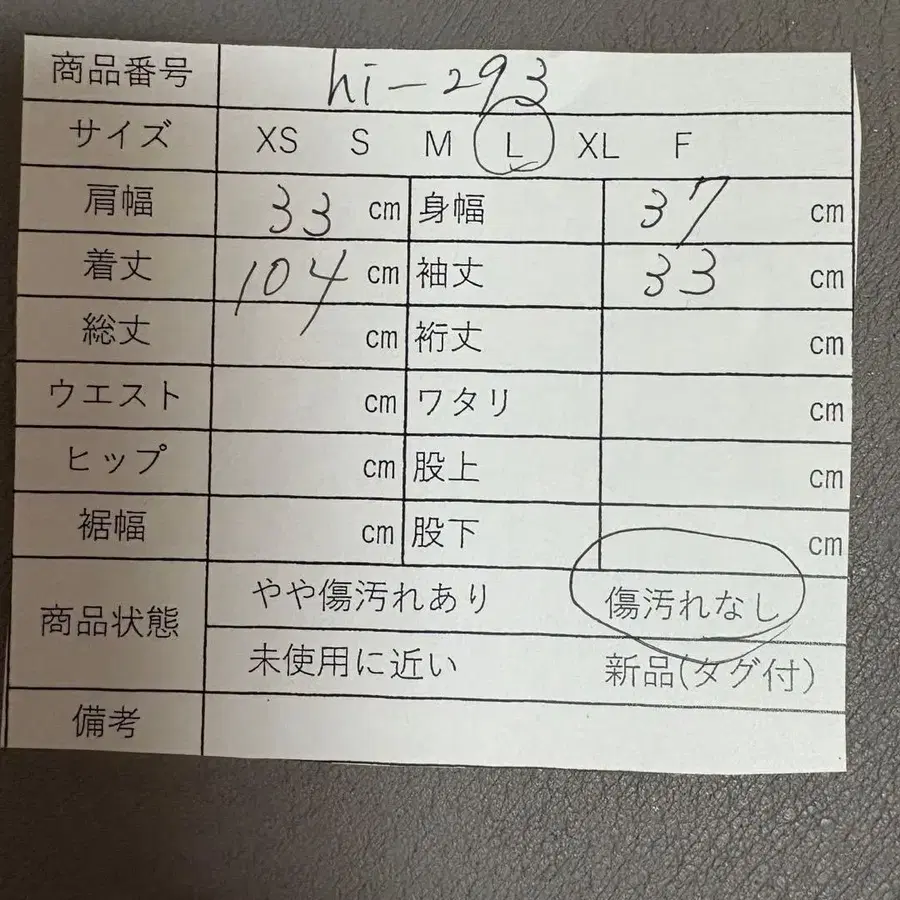 商品番号 hi-293
サイズ XS S M L XL F
肩幅 33 cm 身幅 37 cm
着丈 104 cm 袖丈 33 cm
総丈 cm 裄丈 cm
ウエスト cm ワタリ cm
ヒップ cm 股上 cm
裾幅 cm 股下 cm
商品状態 やや傷汚れあり 傷汚れなし
未使用に近い 新品(タグ付)
備考